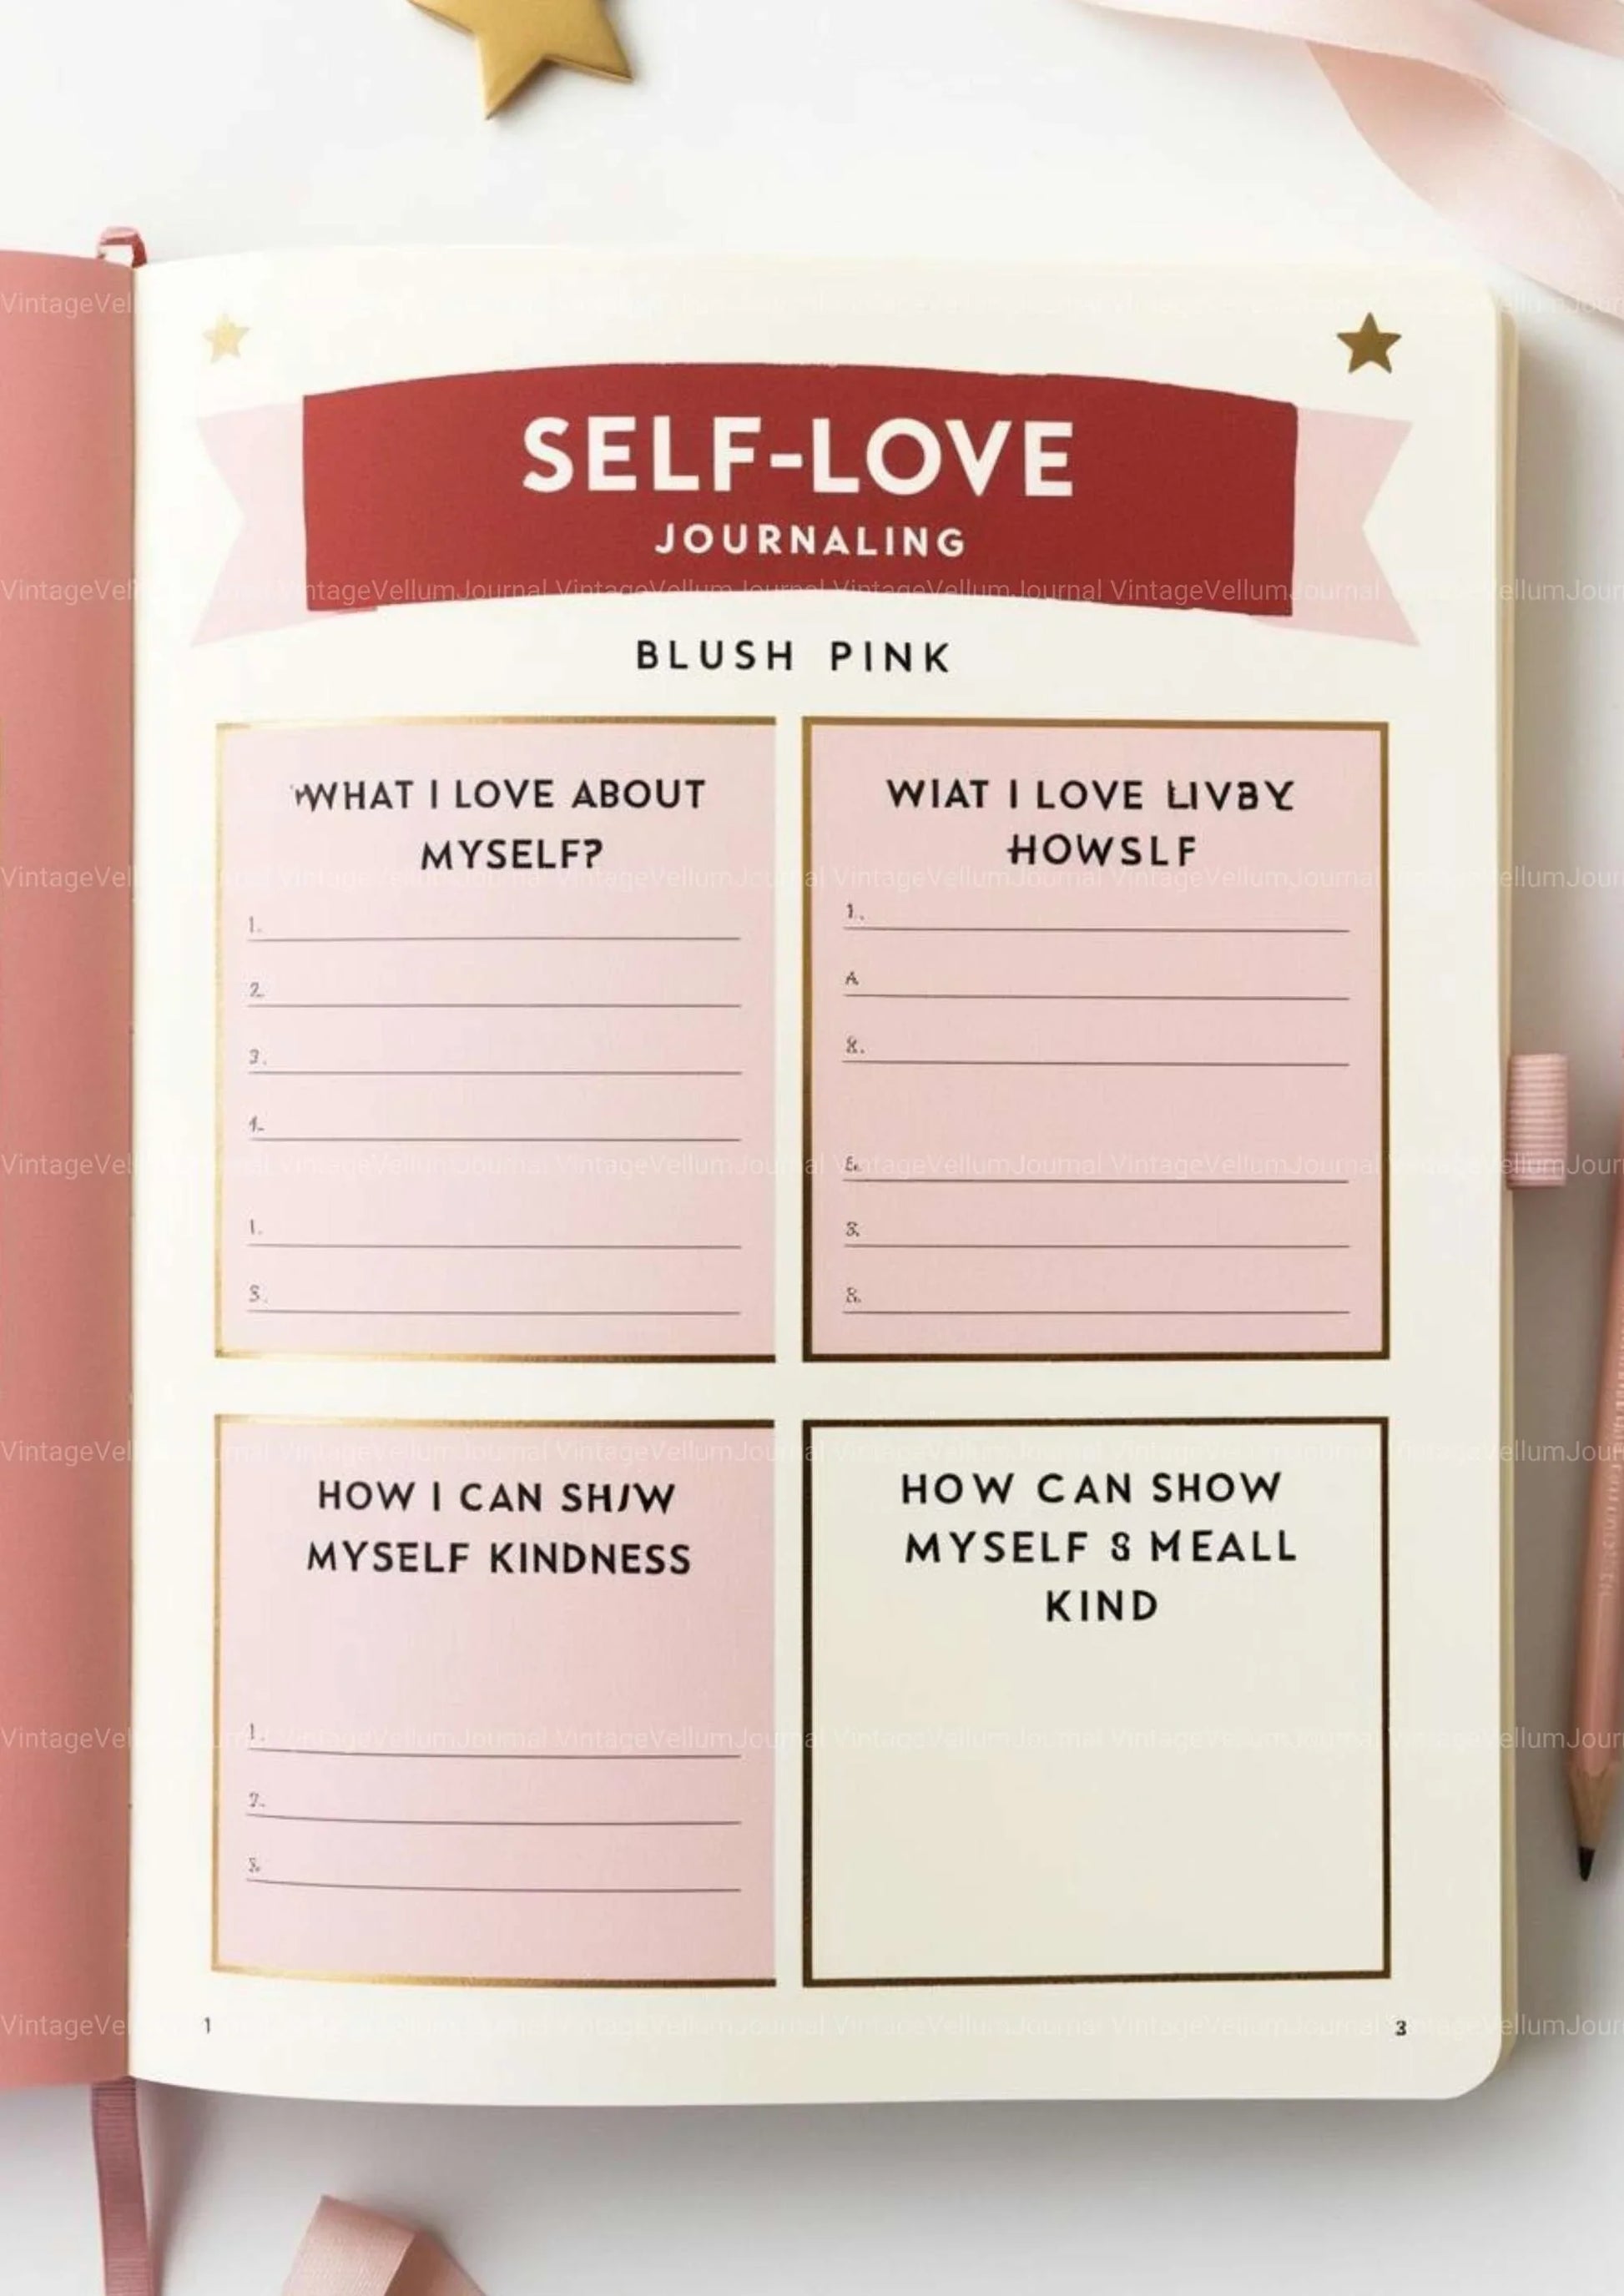 SELF-LOVE
JOURNALING
BLUSH PINK
WHAT I LOVE ABOUT
MYSELF?
1.
2.
3.
4.
1.
3.
WIAT I LOVE LIVBY
HOWSLF
1.
A
8.
E.
3.
8.
HOW I CAN SHIW
MYSELF KINDNESS
1
2.
3.
HOW CAN SHOW
MYSELF 8 MEALL
KIND
1
3
VintageVellumJournal VintageVellumJournal VintageVellumJournal